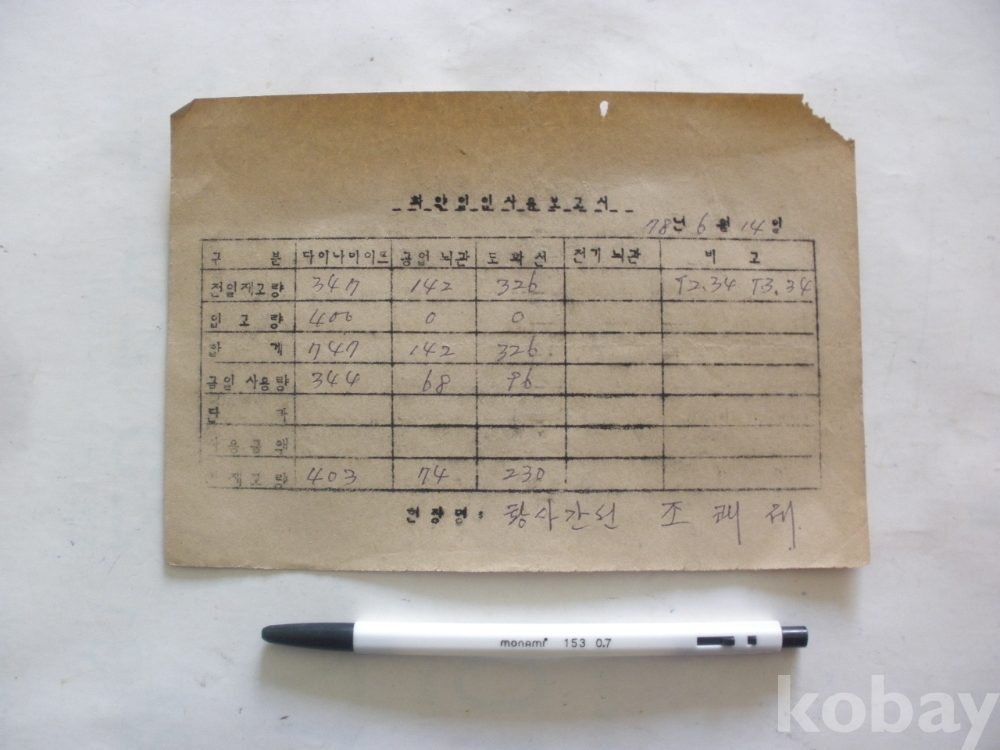 화약일일사용보고서
78년 6월 14일
구 분 다이나마이트 공업뇌관 도화선 전기뇌관 비 고
전일재고량 347 142 326 T2.34 T3.34
입고량 400 0 0
합 계 747 142 326
금일사용량 344 68 96
단 가
사용금액
재고량 403 74 230
현장명: 황사간선 조
monami 153 0.7
kobay